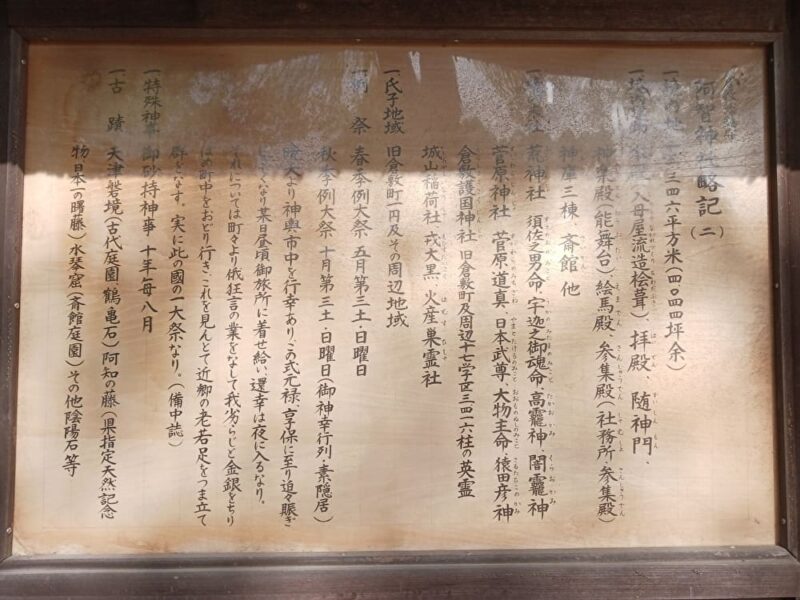 阿智神社略記(二)
一、境内地 一三、三四六平方米(四〇四四坪余)
入母屋流造桧葺)、拝殿、随神門、
神楽殿(能舞台)、絵馬殿、参集殿(社務所、参集殿)
神庫三棟、斎館、他
荒神社 須佐之男命、宇迦之御魂命、高龗神、闇龗神
菅原神社 菅原道真、日本武尊、大物主命、猿田彦神
倉敷護国神社 旧倉敷町及周辺十七学区三四一六柱の英霊
城山稲荷社、戎大黒、火産巣霊社
一、氏子地域 旧倉敷町一円及その周辺地域
一、例 祭 春季例大祭 五月第三土・日曜日
秋季例大祭 十月第三土・日曜日(御神幸行列・素隠居)
暁天より神輿市中を行幸あり、この式元禄、享保に至り追々賑ぎ
しくなり某日昼頃御旅所に着せ給い、還幸は夜に入るなり。
それについては町々より俄狂言の業をなして我劣らじと金銀をちり
ばめ町中をおどり行き、これを見んとて近郷の老若足をつま立て
群をなす。実に此の國の一大祭なり。(備中誌)
一、特殊神事 御砂持神事 十年一毎八月
一、古 蹟 天津磐境(古代庭園、鶴亀石)阿知の藤(県指定天然記念
物日本一の曙藤)水琴窟(斎館庭園)その他陰陽石等